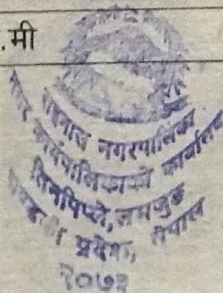 .मी
राइनास नगरपालिका
नगर कार्यपालिकाको कार्यालय
तिनपिप्ले, लमजुङ
गण्डकी प्रदेश, नेपाल
२०७३